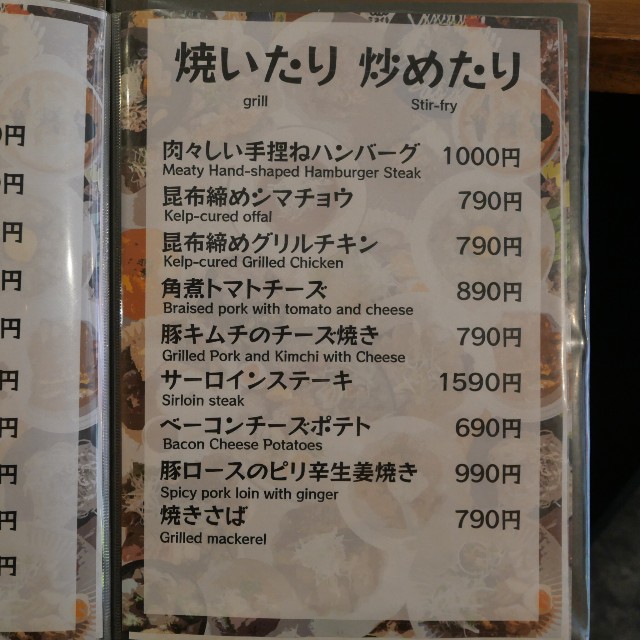 焼いたり 炒めたり
grill Stir-fry
肉々しい手捏ねハンバーグ 1000円
Meaty Hand-shaped Hamburger Steak
昆布締めシマチョウ 790円
Kelp-cured offal
昆布締めグリルチキン 790円
Kelp-cured Grilled Chicken
角煮トマトチーズ 890円
Braised pork with tomato and cheese
豚キムチのチーズ焼き 790円
Grilled Pork and Kimchi with Cheese
サーロインステーキ 1590円
Sirloin steak
ベーコンチーズポテト 690円
Bacon Cheese Potatoes
豚ロースのピリ辛生姜焼き 990円
Spicy pork loin with ginger
焼きさば 790円
Grilled mackerel
円
円
円
円
円
円
円
円
円
円